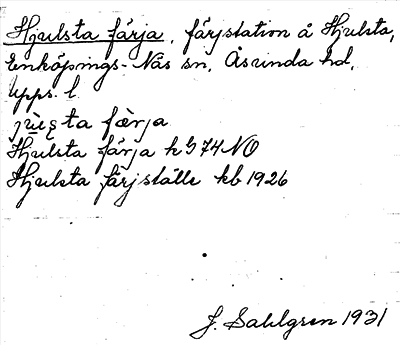 Hjulsta färja, färjstation å Hjulsta,
Enköpings-Näs sn, Åsunda hd,
Upps. l.
færja
Hjulsta färja k G 74 NO
Hjulsta färjställe kb 1926
J. Sahlgren 1931